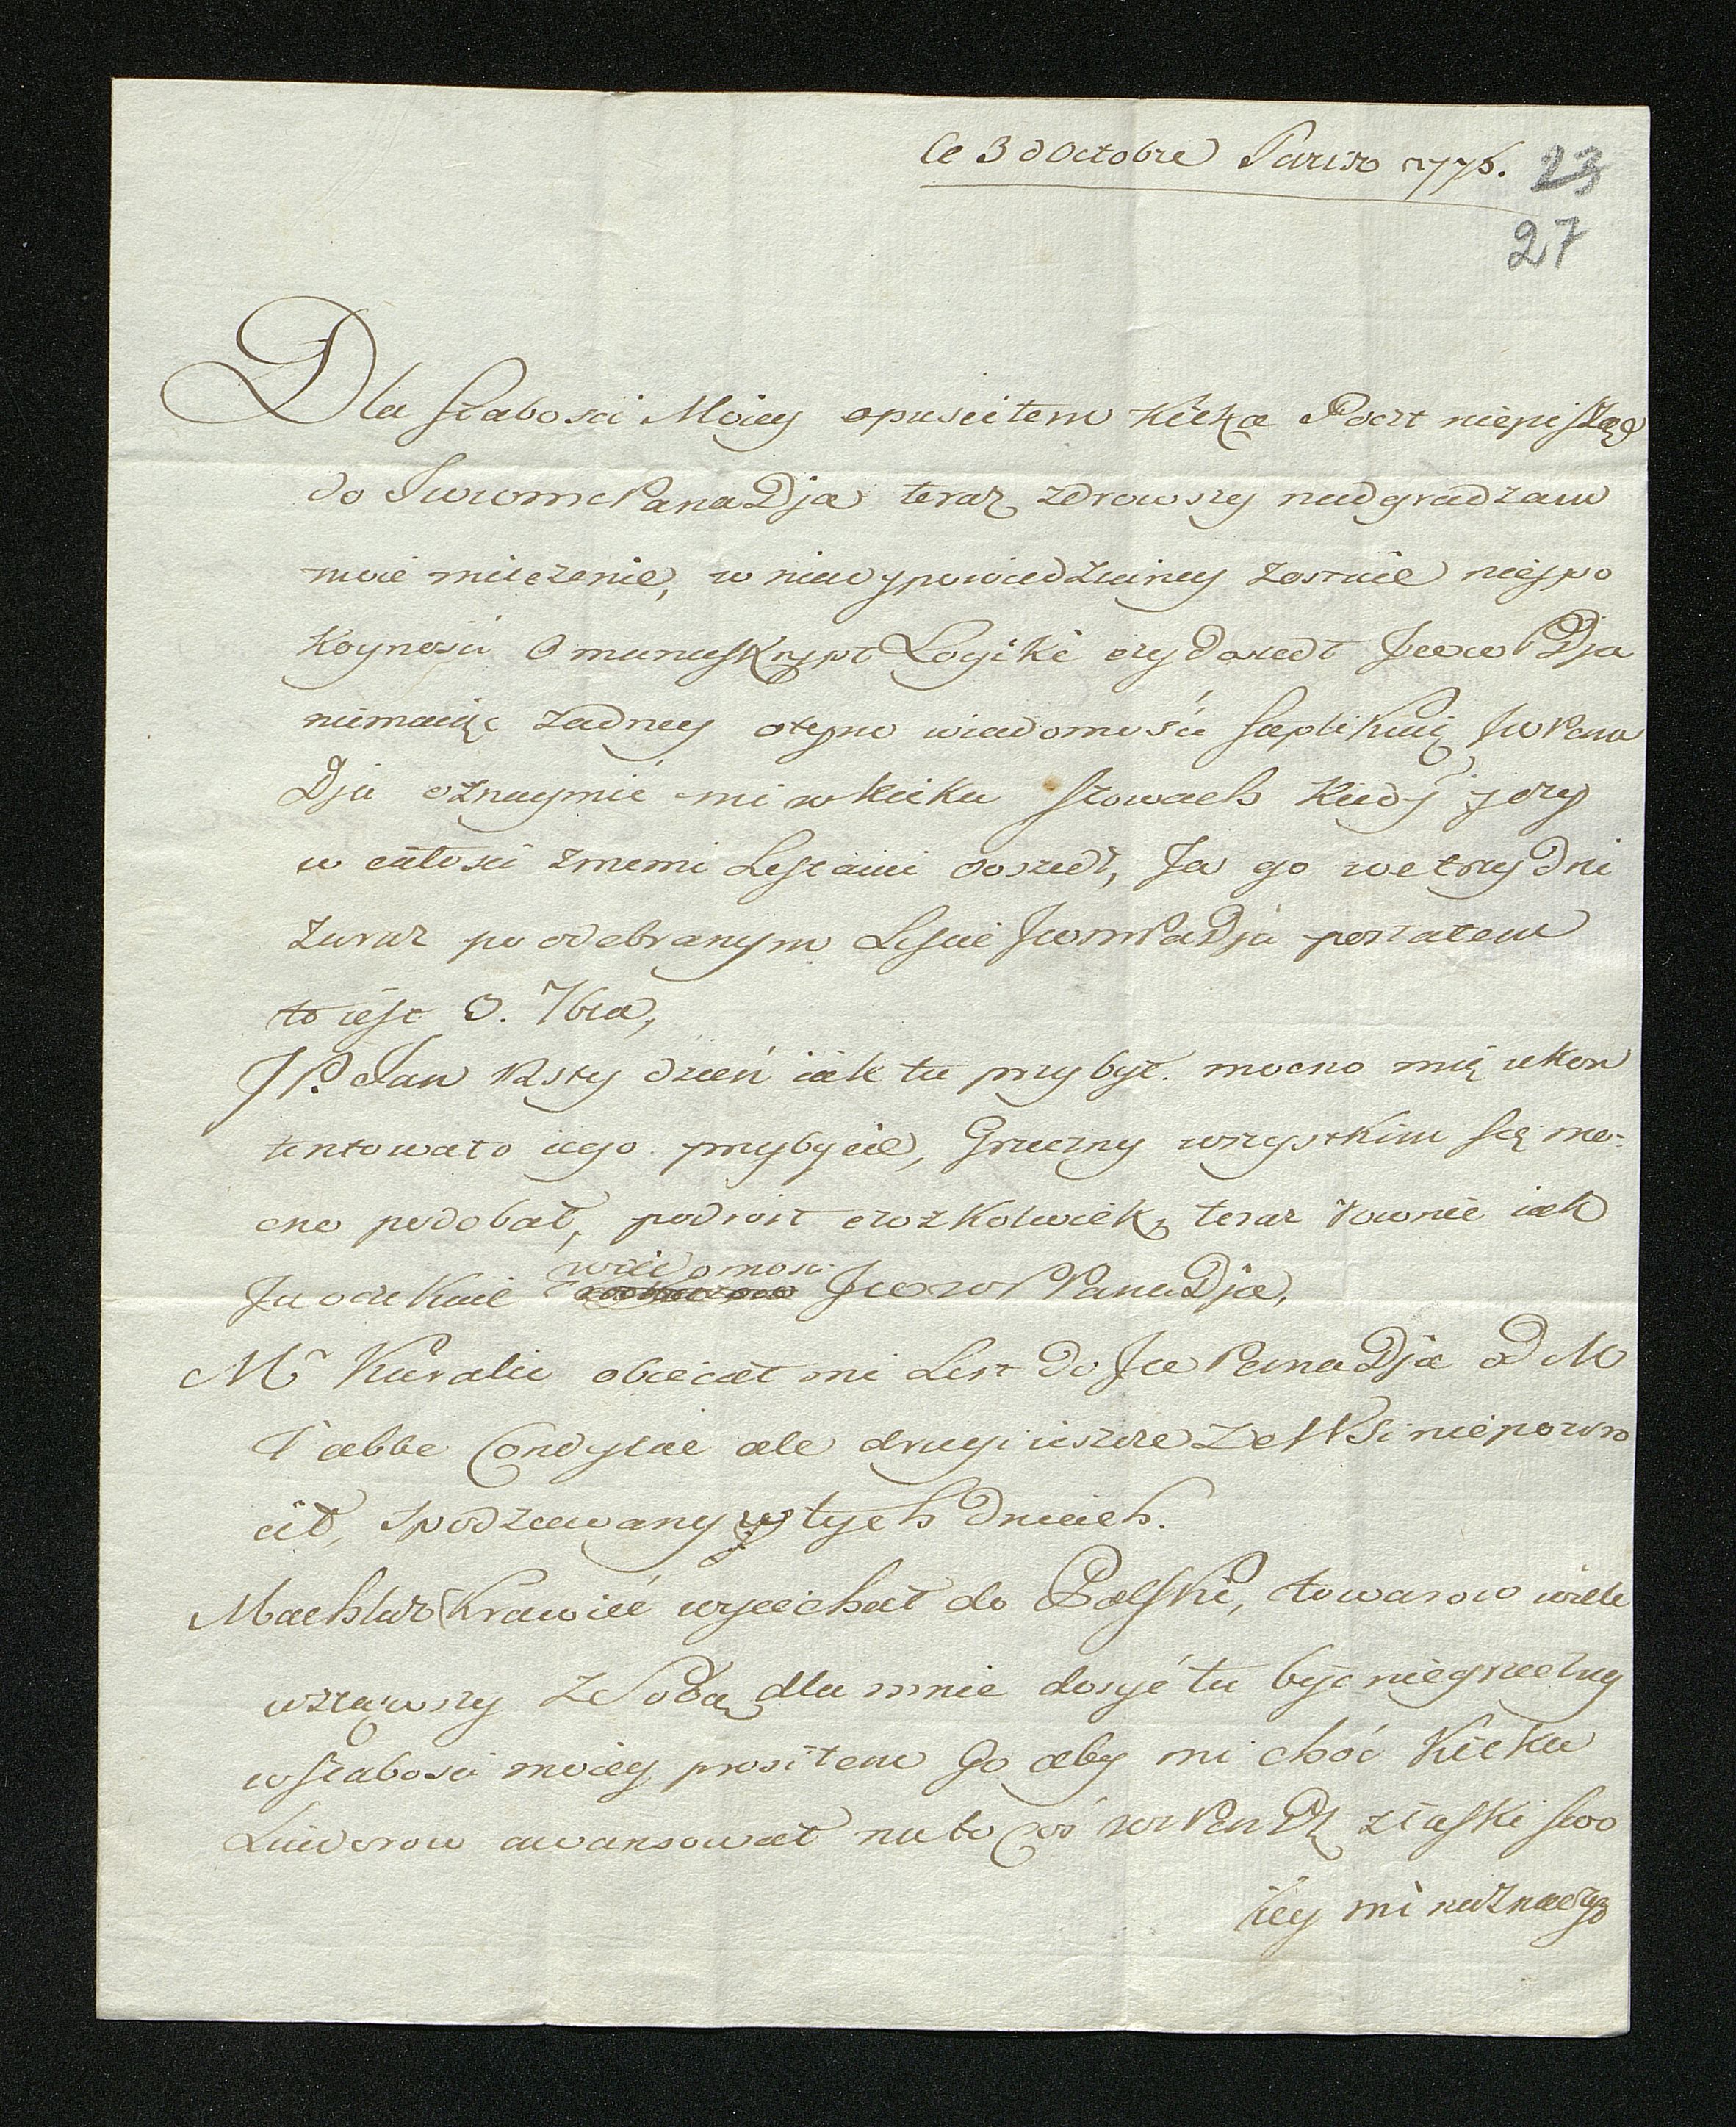 le 3 d Octobre Paris 1776.
23
27
Dla słabości Moiey opuscilem kilka Poczt niepisząc
do Jwom Pana Dja teraz zdrowszy nadgradzam
moie milczenie, w niewypowiedzianey zostaie niespo
koynosci O manuskrypt Logiki czy doszedł Jwo P Dja
niemaiąc żadney otym wiadomości supplikuię Jw Pana
Dja oznaymić mi w kilku słowach kiedy y czy
w całości z memi Listami doszedł, Ja go we trzy dni
zaraz po odebranym Liscie Jwom Pa Dja posłałem
to iest 3. 7bra,
J P. Jan 12sty dzień iak tu przybył. mocno mię ukon
tentowało iego przybycie, Grzeczny wszystkim się mo-
cno podobał, podrost cożkolwiek, teraz rownie iak
Ja oczekuie wiadomosci Jwom Pana Dja,
Mr Kuralic obiecał mi List do Jw Pana Dja od M
l'abbe Condylac ale drugi ieszcze ze Wsi niepowro
cił, spodziewany w tych dniach.
Machlar Krawiec wyiechał do Polski, towarow wiele
wziąwszy z Sobą, dla mnie dosyć tu był niegrzeczny
w słabości moiey prosiłem Go aby mi choć kilka
Luidorow awansował na to coś JW Pan D z łaski swo
iey mi naznaczył